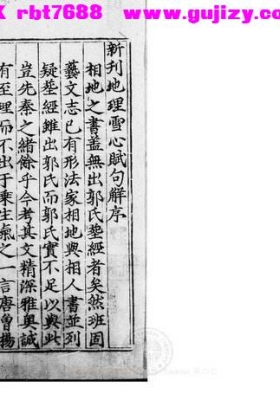 rbt7688 www.gujizy.c
新刊地理雪心賦句解序
相地之書蓋無出郭氏葬經者矣然班固
藝文志已有形法家相地與相人書並列
疑葬經雖出郭氏而郭氏實不足以與此
豈先秦之緒餘乎今考其文精深雅奥誠
有至理而不出于乘生氣之一言唐曾楊